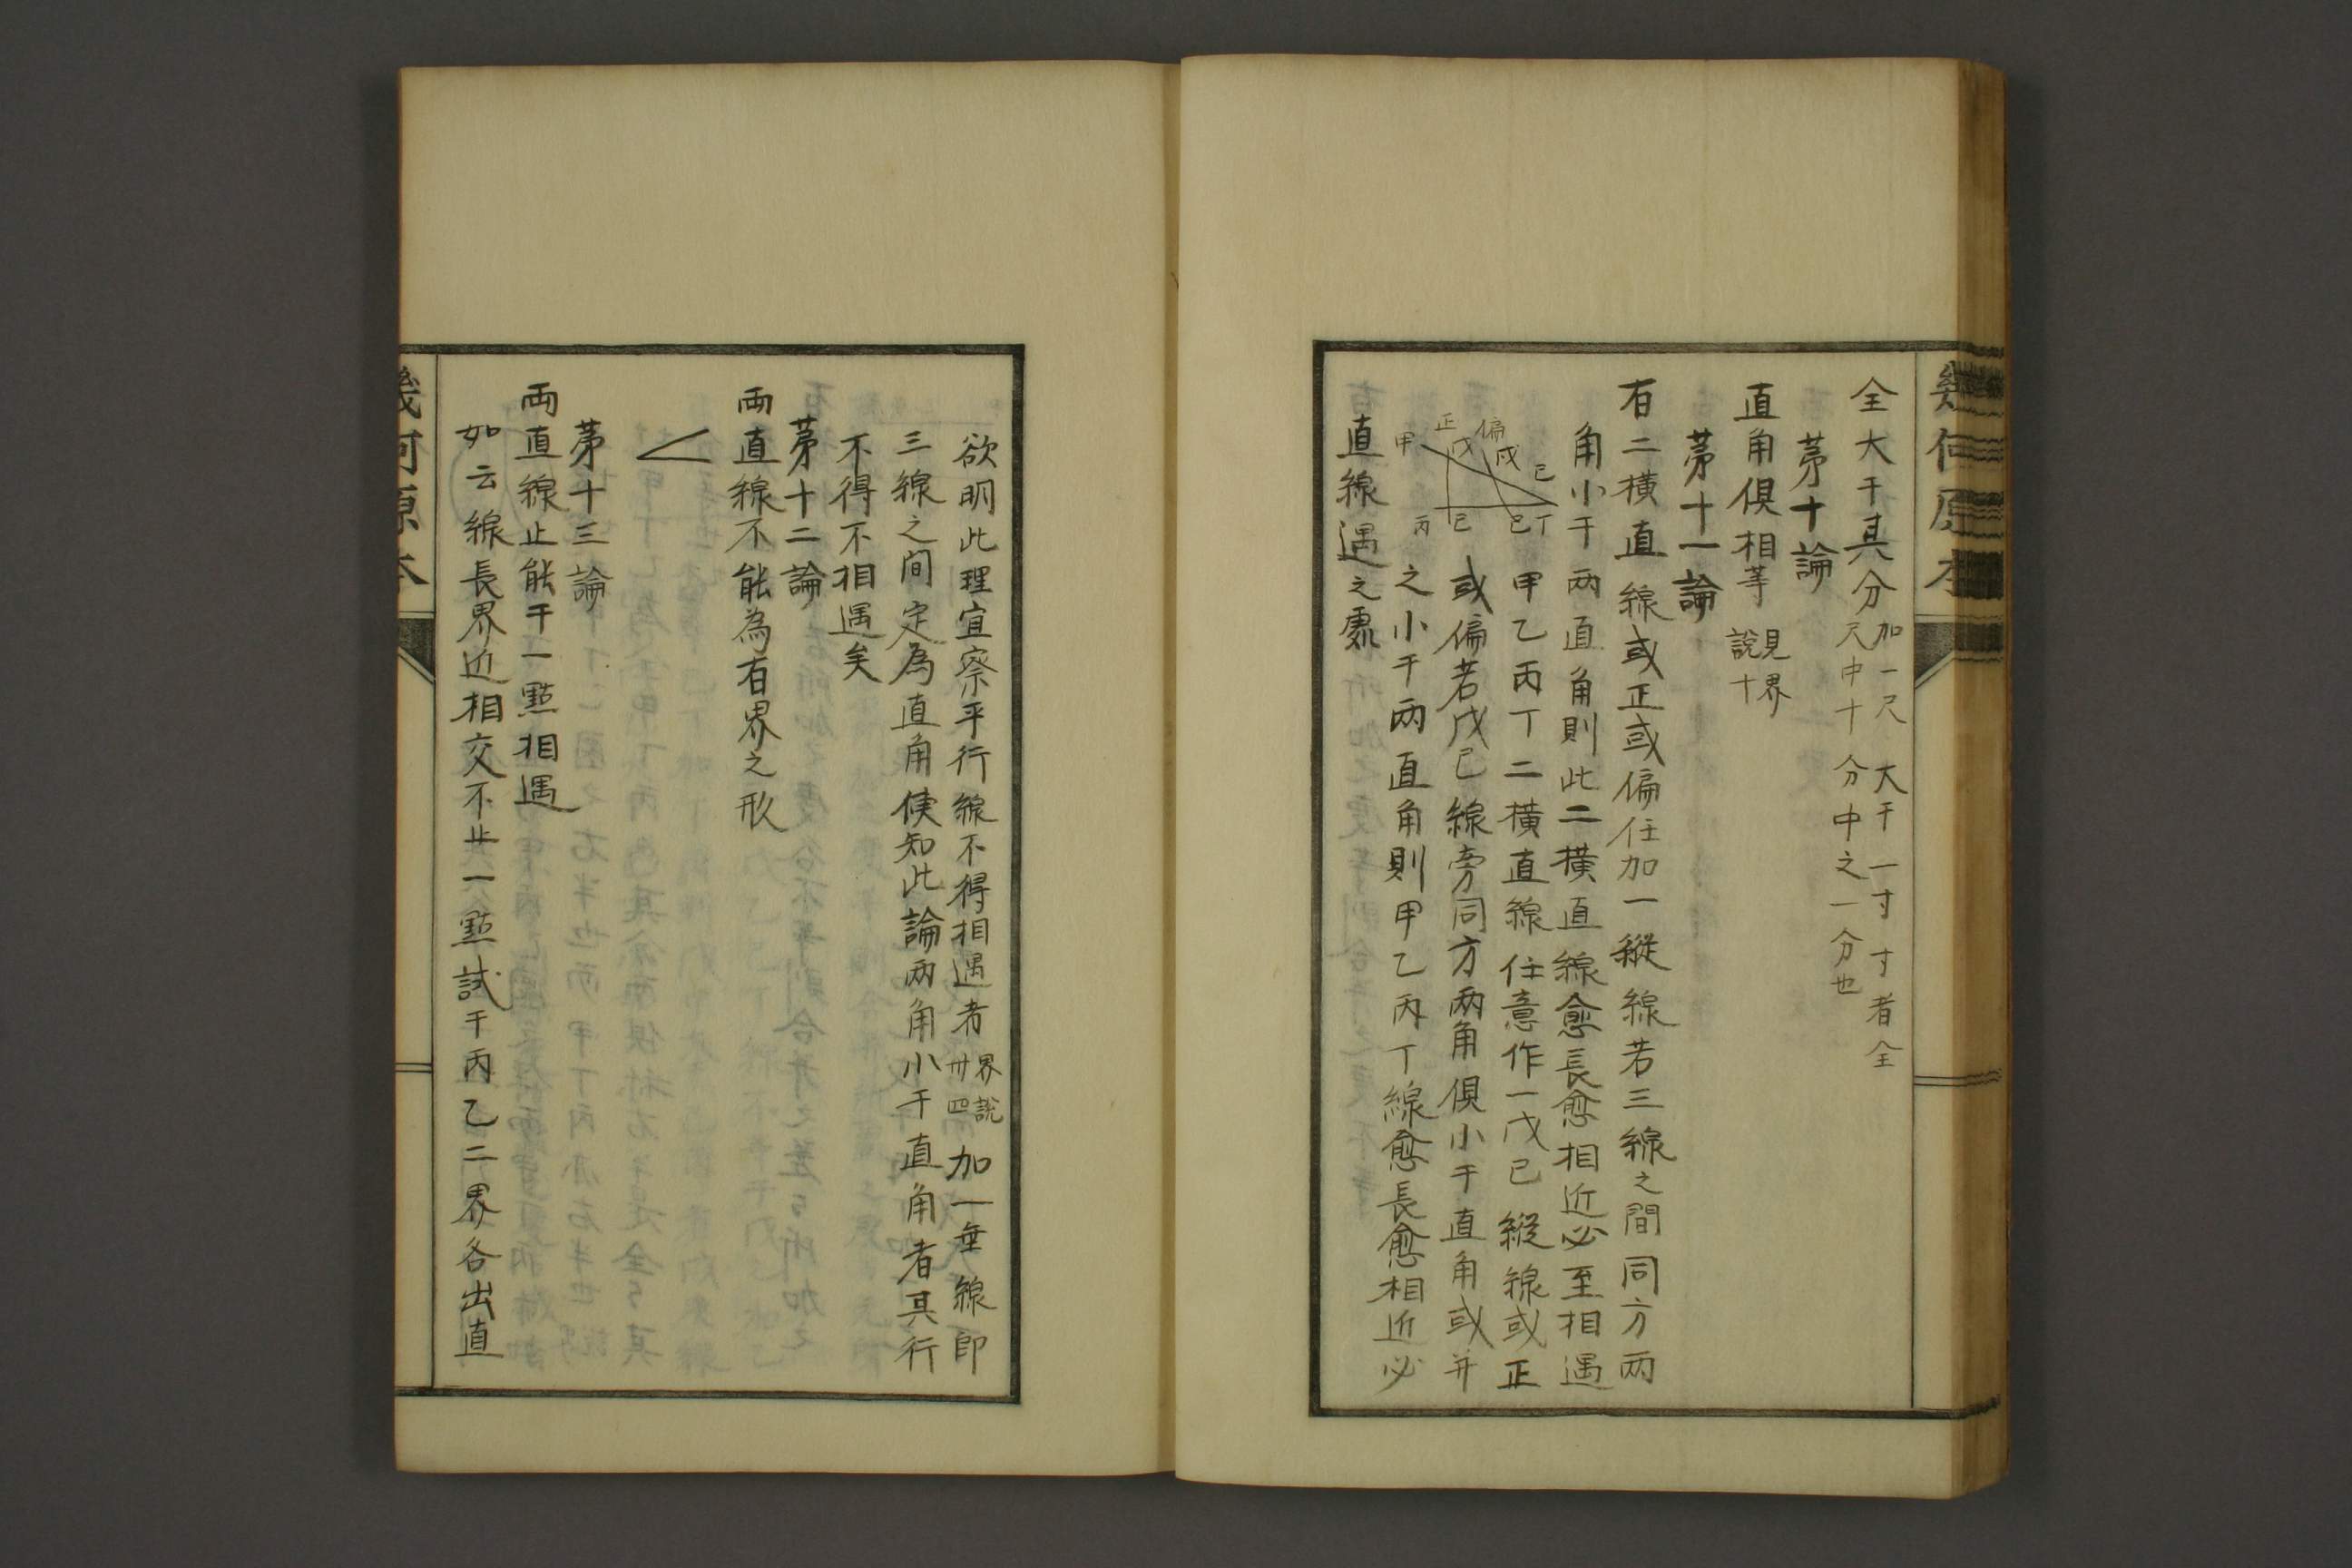 全大于其分如一尺大于一寸寸者全
尺中十分中之一分也
第十論
直角俱相等見界
說十
第十一論
有二橫直線或正或偏任加一縱線若三線之間同方兩
角小于兩直角則此二橫直線愈長愈相近必至相遇
甲乙丙丁二橫直線任意作一戊己縱線或正
或偏若戊己線旁同方兩角俱小于直角或并
之小于兩直角則甲乙丙丁線愈長愈相近必
直線遇之處
正 偏
甲 戊 戊 己
丙 己 己 丁
欲明此理宜察平行線不得相遇者界說
卅四加一垂線即
三線之間定為直角倏知此論兩角小于直角者其行
不得不相遇矣
第十二論
兩直線不能為有界之形
第十三論
兩直線止能于一點相遇
如云線長界近相交不止一點試于丙乙二界各出直
幾何原本